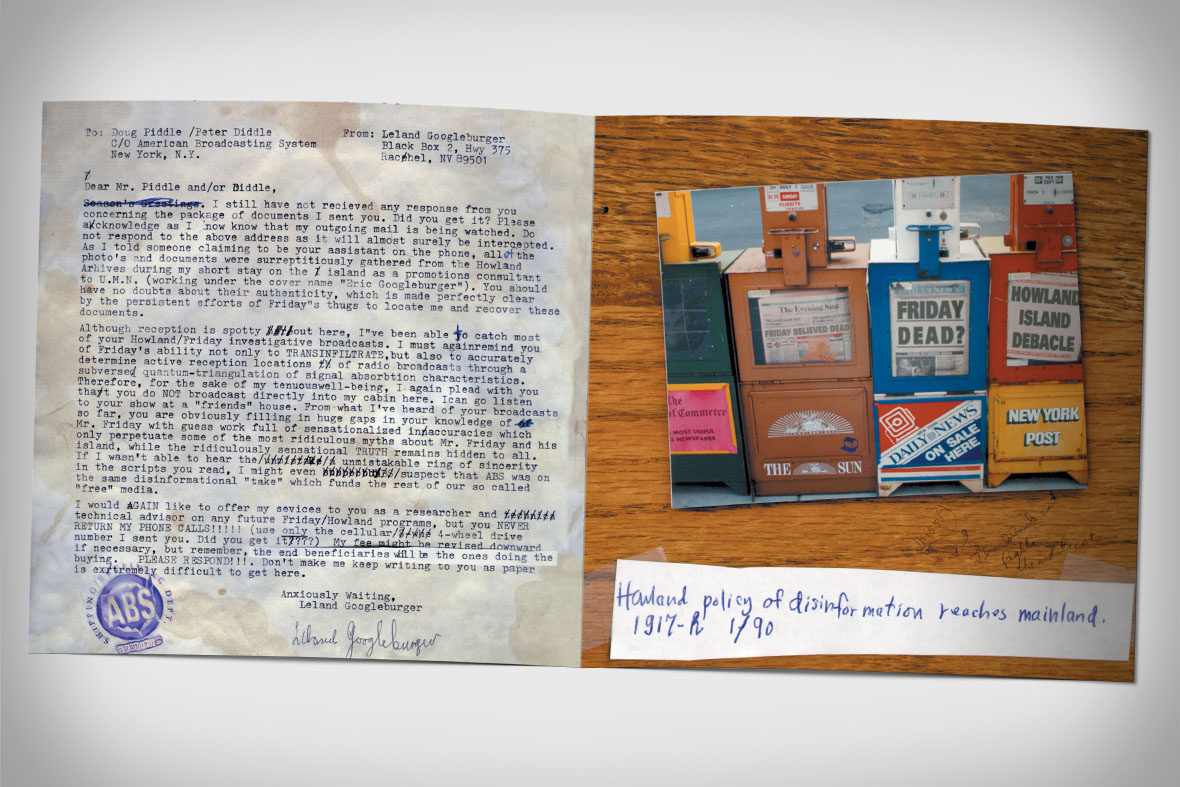 To: Doug Piddle /Peter Diddle
C/O American Broadcasting System
New York, N.Y.
From: Leland Googleburger
Black Box 2, Hwy 375
Rachel, NV 89501
Dear Mr. Piddle and/or Diddle,
Season's Greetings. I still have not recieved any response from you
concerning the package of documents I sent you. Did you get it? Please
acknowledge as I now know that my outgoing mail is being watched. Do
not respond to the above address as it will almost surely be intercepted.
As I told someone claiming to be your assistant on the phone, all of the
photo's and documents were surreptitiously gathered from the Howland
Arhives during my short stay on the island as a promotions consultant
to U.M.N. (working under the cover name "Eric Googleburger"). You should
have no doubts about their authenticity, which is made perfectly clear
by the persistent efforts of Friday"s thugs to locate me and recover these
documents.
Although reception is spotty out here, I"ve been able to catch most
of your Howland/Friday investigative broadcasts. I must againremind you
of Friday's ability not only to TRANSINFILTRATE,but also to accurately
determine active reception locations of radio broadcasts through a
subversed quantum-triangulation of signal absorbtion characteristics.
Therefore, for the sake of my tenuouswell-being, I again plead with you
that you do NOT broadcast directly into my cabin here. Ican go listen
to your show at a "friends" house. From what I've heard of your broadcasts
so far, you are obviously filling in huge gaps in your knowledge of
Mr. Friday with guess work full of sensationalized inaccuracies which
only perpetuate some of the most ridiculous myths about Mr. Friday and his
island, while the ridiculously sensational TRUTH remains hidden to all.
If I wasn't able to hear the unmistakable ring of sincerity
in the scripts you read, I might even suspect that ABS was on
the same disinformational "take" which funds the rest of our so called
"free" media.
I would AGAIN like to offer my sevices to you as a researcher and
technical advisor on any future Friday/Howland programs, but you NEVER
RETURN MY PHONE CALLS!!!!! (use only the cellular/ 4-wheel drive
number I sent you. Did you get it????) My fee might be revised downward
if necessary, but remember, the end beneficiaries will be the ones doing the
buying. PLEASE RESPOND!!!. Don't make me keep writing to you as paper
is extremely difficult to get here.
Anxiously Waiting,
Leland Googleburger
Leland Googleburger
SHIPPING DEPT.
ABS
The Evening Sun
FRIDAY BELIEVED DEAD
FRIDAY
DEAD?
HOWLAND
ISLAND
DEBACLE
The
of Commerce
MOST USEFUL
NEWSPAPER
THE SUN
DAILY NEWS
ON SALE
HERE
NEW YORK
POST
Howland policy of disinformation reaches mainland.
1917-R 1/90